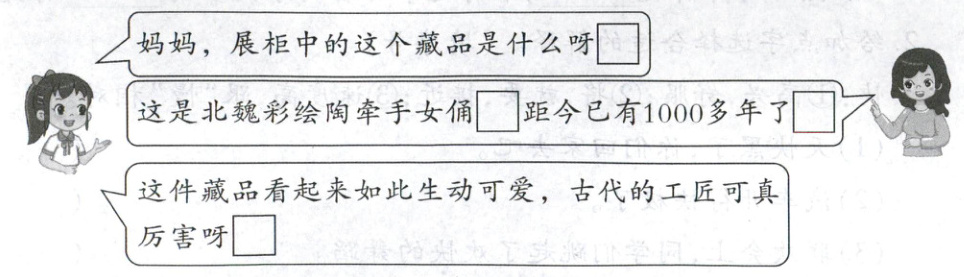 妈妈，展柜中的这个藏品是什么呀□
这是北魏彩绘陶牵手女俑□距今已有1000多年了□
这件藏品看起来如此生动可爱，古代的工匠可真
厉害呀□